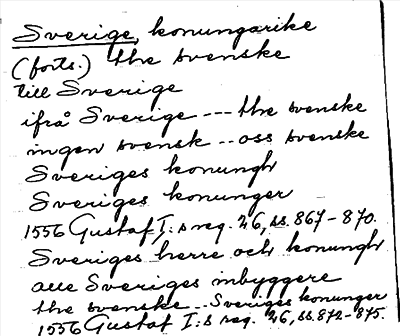 Sverige, konungarike
(forts.) the svenske
till Sverige
ifrå Sverige --- the svenske
ingen svensk .. oss svenske
Sveriges konungh
Sveriges konunger
1556 Gustaf I:s reg. 26, ss. 867-870.
Sveriges herre och konungh
alle Sveriges inbyggere
the svenske .. Sveriges konunger
1556 Gustaf I:s reg. 26, ss. 872-875.